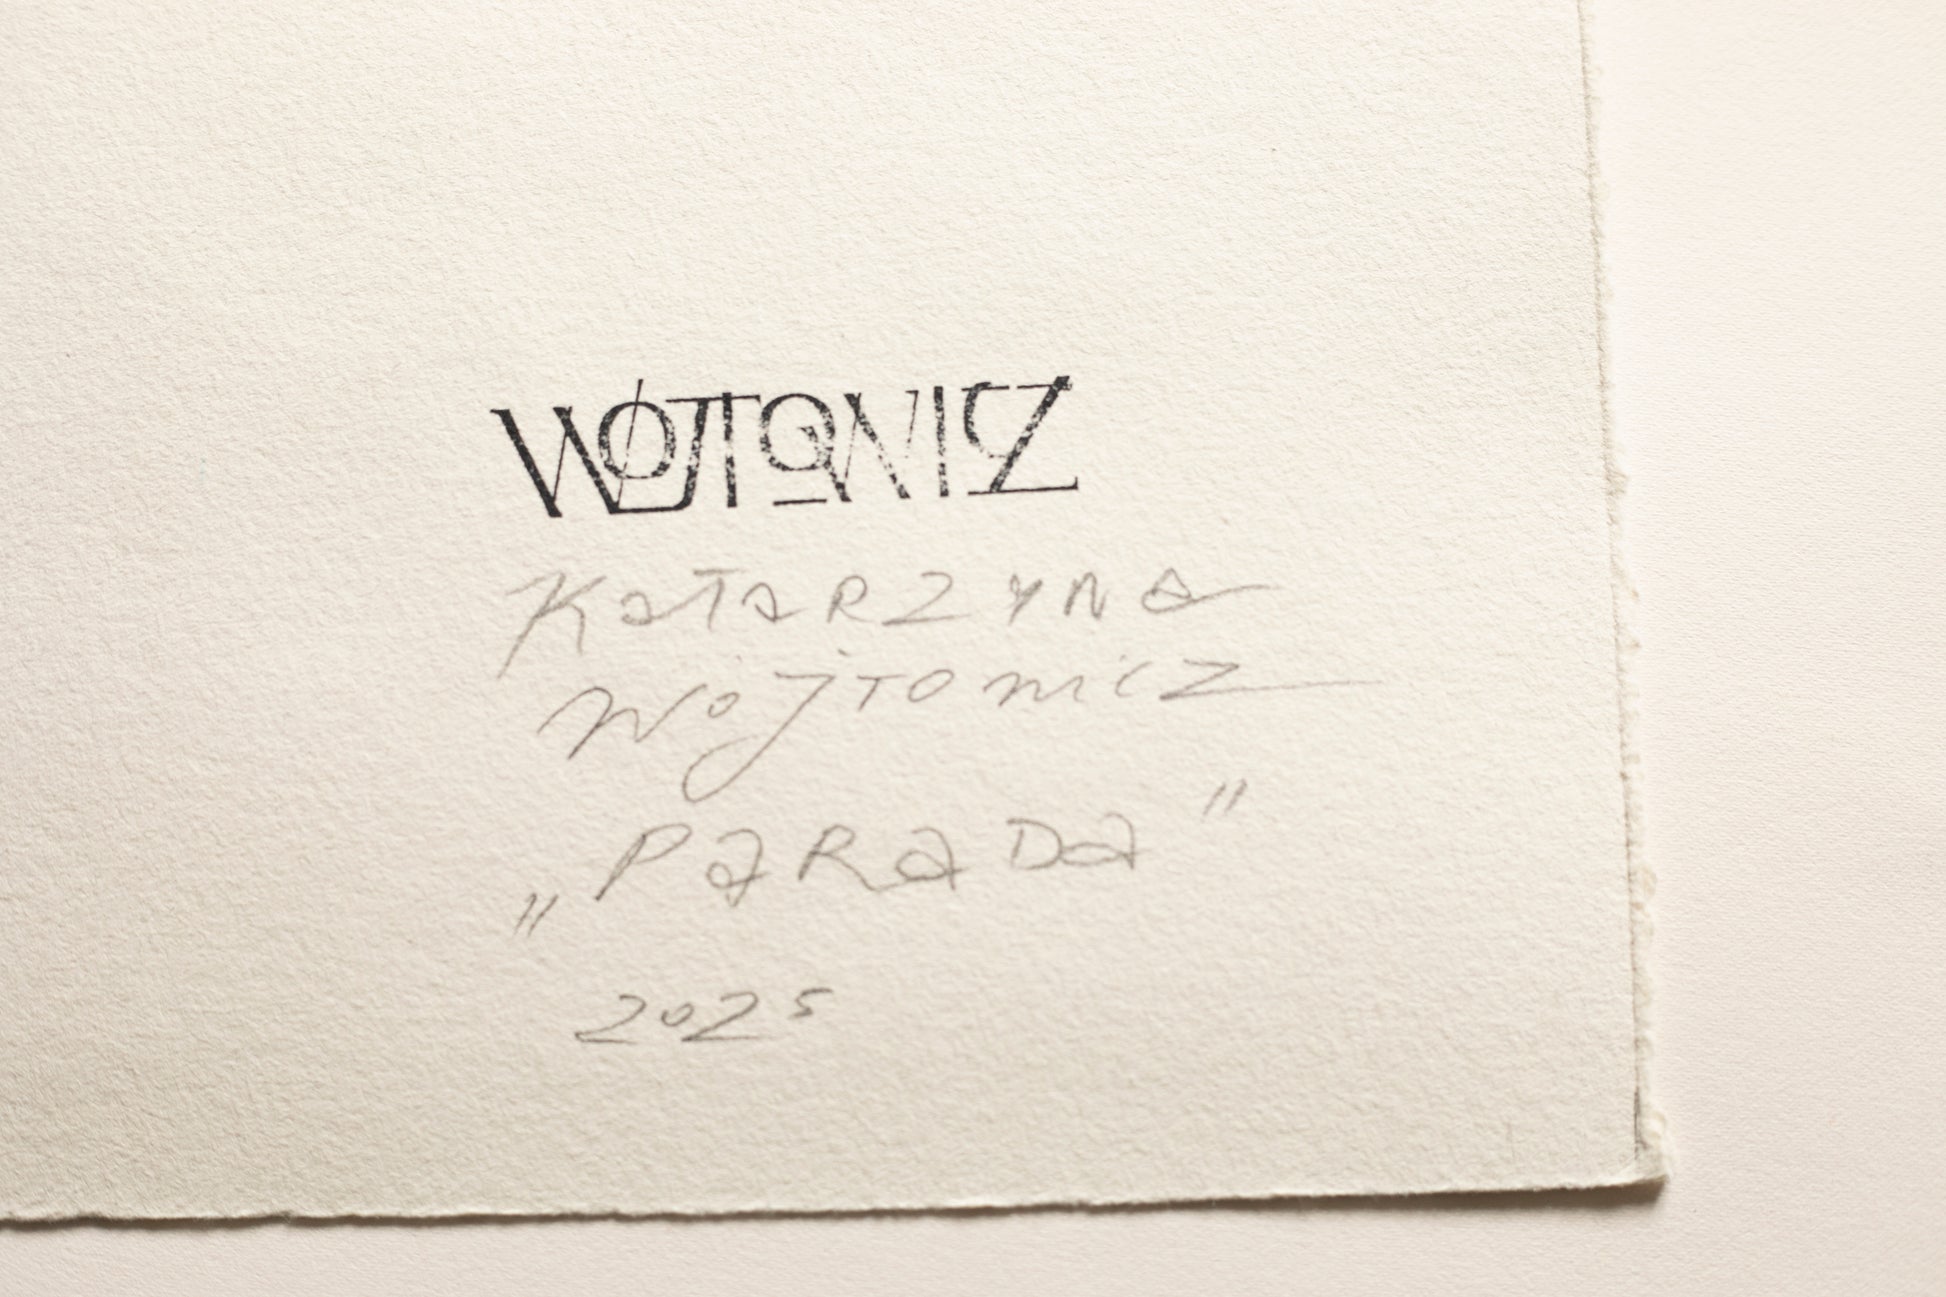 WOJTOWICZ
KATARZYNA
WOJTOWICZ
„PARADA"
2025